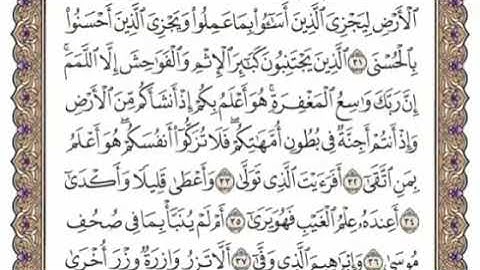 ٱلْأَرْضِ لِيَجْزِيَ ٱلَّذِينَ أَسَٰٓـُٔوا۟ بِمَا عَمِلُوا۟ وَيَجْزِيَ ٱلَّذِينَ أَحْسَنُوا۟
بِٱلْحُسْنَى ٣١ ٱلَّذِينَ يَجْتَنِبُونَ كَبَٰٓئِرَ ٱلْإِثْمِ وَٱلْفَوَٰحِشَ إِلَّا ٱللَّمَمَ ۚ
إِنَّ رَبَّكَ وَٰسِعُ ٱلْمَغْفِرَةِ ۚ هُوَ أَعْلَمُ بِكُمْ إِذْ أَنشَأَكُم مِّنَ ٱلْأَرْضِ
وَإِذْ أَنتُمْ أَجِنَّةٌ فِى بُطُونِ أُمَّهَٰتِكُمْ ۖ فَلَا تُزَكُّوٓا۟ أَنفُسَكُمْ ۖ هُوَ أَعْلَمُ
بِمَنِ ٱتَّقَىٰٓ ٣٢ أَفَرَءَيْتَ ٱلَّذِى تَوَلَّىٰ ٣٣ وَأَعْطَىٰ قَلِيلًا وَأَكْدَىٰٓ
٣٤ أَعِندَهُۥ عِلْمُ ٱلْغَيْبِ فَهُوَ يَرَىٰٓ ٣٥ أَمْ لَمْ يُنَبَّأْ بِمَا فِى صُحُفِ
مُوسَىٰ ٣٦ وَإِبْرَٰهِيمَ ٱلَّذِى وَفَّىٰٓ ٣٧ أَلَّا تَزِرُ وَازِرَةٌ وِزْرَ أُخْرَىٰ